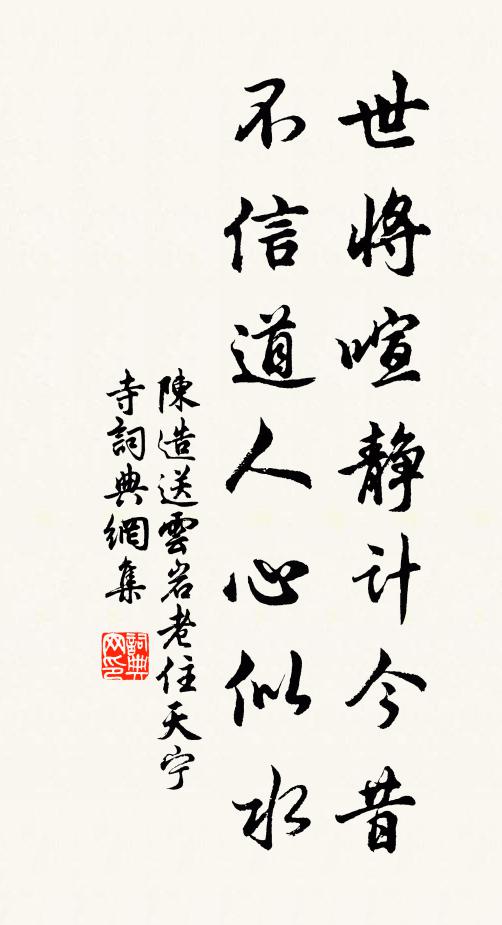 世將喧靜计今昔
不信道人心似水
陳造送雲岩老住天宁
寺詞典網集
詞典
网印